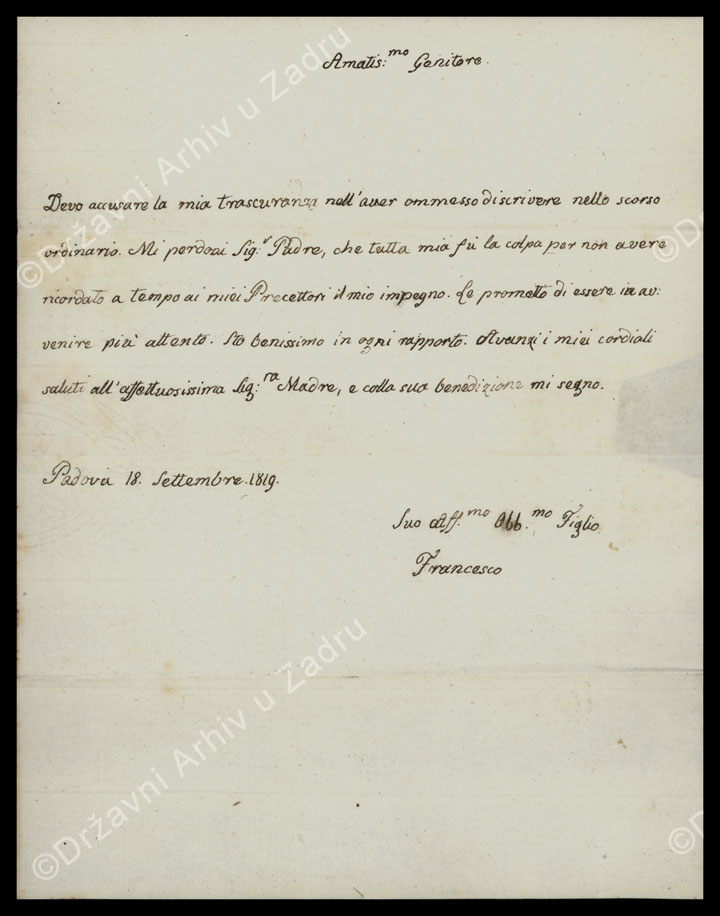 Amatis:mo Genitore.
Devo accusare la mia trascuranza nell'aver ommesso di scrivere nello scorso
ordinario. Mi perdoni Sig:r Padre, che tutta mia fù la colpa per non avere
ricordato a tempo ai miei Precettori il mio impegno. Le prometto di essere in av:
venire più attento. Sto benissimo in ogni rapporto. Avanzi i miei cordiali
saluti all'affettuosissima Sig:ra Madre, e colla sua benedizione mi segno.
Padova 18. Settembre. 1819.
Suo Aff.mo Obb.mo Figlio
Francesco
©Državni Arhiv u Zadru
©Državni Arhiv u Zadru
©D
©D